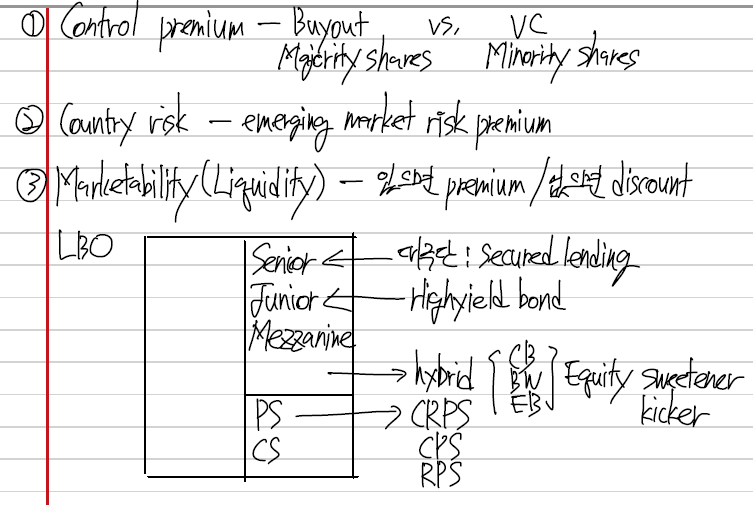 ① Control premium – Buyout vs. VC
Majority shares Minority shares
② Country risk – emerging market risk premium
③ Marketability (Liquidity) – 있으면 premium / 없으면 discount
LBO
Senior ← 대주단 : Secured lending
Junior ← Highyield bond
Mezzanine
→ hybrid [CB BW EB] Equity sweetener
kicker
PS → CRPS
CS CPS
RPS